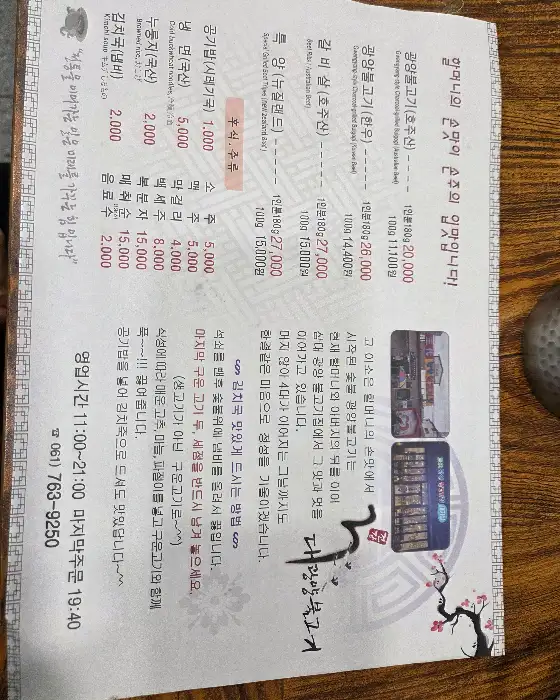 할머니의 손맛이 손주의 입맛입니다!
광양불고기(호주산) ----- 1인분180g 20,000
Gwangyang-style Charcoal-grilled Bulgogi (Australian Beef)
100g 11,100원
광양불고기(한우) ----- 1인분180g 26,000
100g 14,400원
갈비살(호주산) ----- 1인분180g 27,000
100g 15,000원
특 양(뉴질랜드) ----- 1인분180g 27,000
100g 15,000원
후식.주류
공기밥(시래기국) 1,000
냉 면(국산) 5,000
누룽지(국산) 2,000
김치국(냄비) 2,000
소 주 5,000
맥 주 5,000
막걸리 4,000
백세주 8,000
복분자 15,000
매취순 15,000
음료수 2,000
고 이소은 할머니의 손맛에서
시작된 숯불 광양불고기는
현재 할머니와 아버지의 뒤를 이어
삼대 광양불고기집에서 그 맛과 멋을
이어가고 있습니다.
머지 않아 4대가 이어지는 그날까지도
한결같은 마음으로 정성을 기울이겠습니다.
김치국 맛있게 드시는 방법
석쇠를 뺀 후 숯불위에 냄비를 올려서 끓입니다.
마지막 구운 고기 두, 세점을 반드시 남겨 놓으세요.
(생고기가 아닌 구운고기로~^^)
식성에 따라 매운고추,마늘,파절이를 넣고 구운고기와 함께
푹~~!!! 끓여줍니다.
공기밥을 넣어 김치죽으로 드셔도 맛있답니다~^^
영업시간 11:00~21:00 마지막주문 19:40
☎ 061) 763-9250